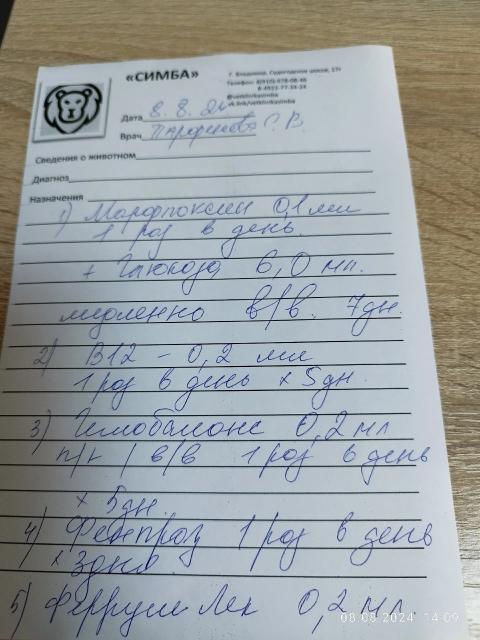 «СИМБА»
г. Владимир, Судогодское шоссе, 17г
Телефон: 8(910)-678-08-46
8-4922-77-34-24
@vetklinikasimba
vk.link/vetklinikasimba
Дата 8.8.24
Врач Парфенова С.В.
Сведения о животном
Диагноз
Назначения
1) Марфлоксин 0,1 мл
1 раз в день.
+ Глюкоза 6,0 мл.
медленно в/в. 7дн.
2) В12 - 0,2 мл
1 раз в день х 5дн.
3) Гемобаланс 0,2 мл
п/к / в/в 1 раз в день
х 5дн.
4) Фенпраз 1 раз в день
х 3дня
5) Феррум Лек 0,2 мл.
08.08.2024 14:09